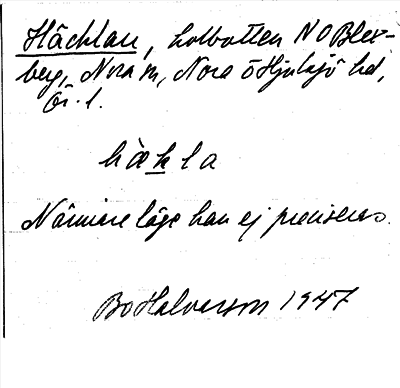 Häcklan, kolbotten NO Blex-
berg, Nora sn, Nora o Hjulsjö hd,
Ör. l.
hàkla
Närmare läge kan ej preciseras.
Bo Halvarson 1947